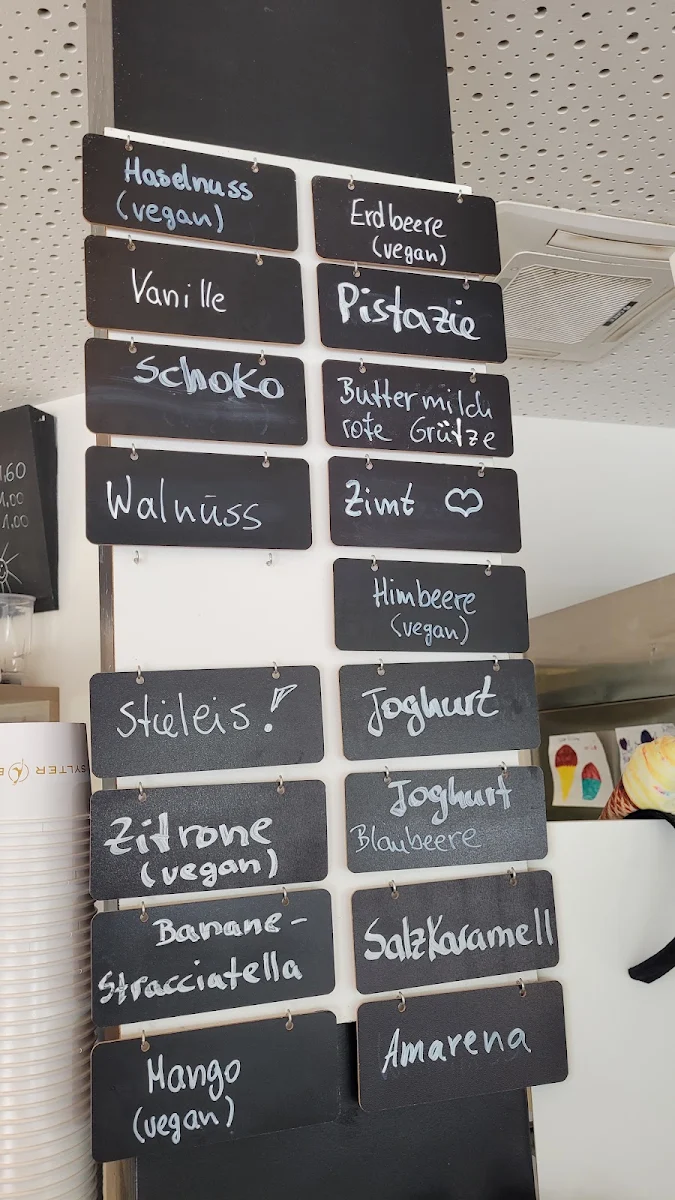 Haselnuss
(vegan)
Vanille
Schoko
Walnūss
Stieleis!
Zitrone
(vegan)
Banane-
Stracciatella
Mango
(vegan)
Erdbeere
(vegan)
Pistazie
Buttermilch
rote Grütze
Zimt ♡
Himbeere
(vegan)
Joghurt
Joghurt
Blaubeere
Salzkaramell
Amarena
1,00
1.00
SYLTER